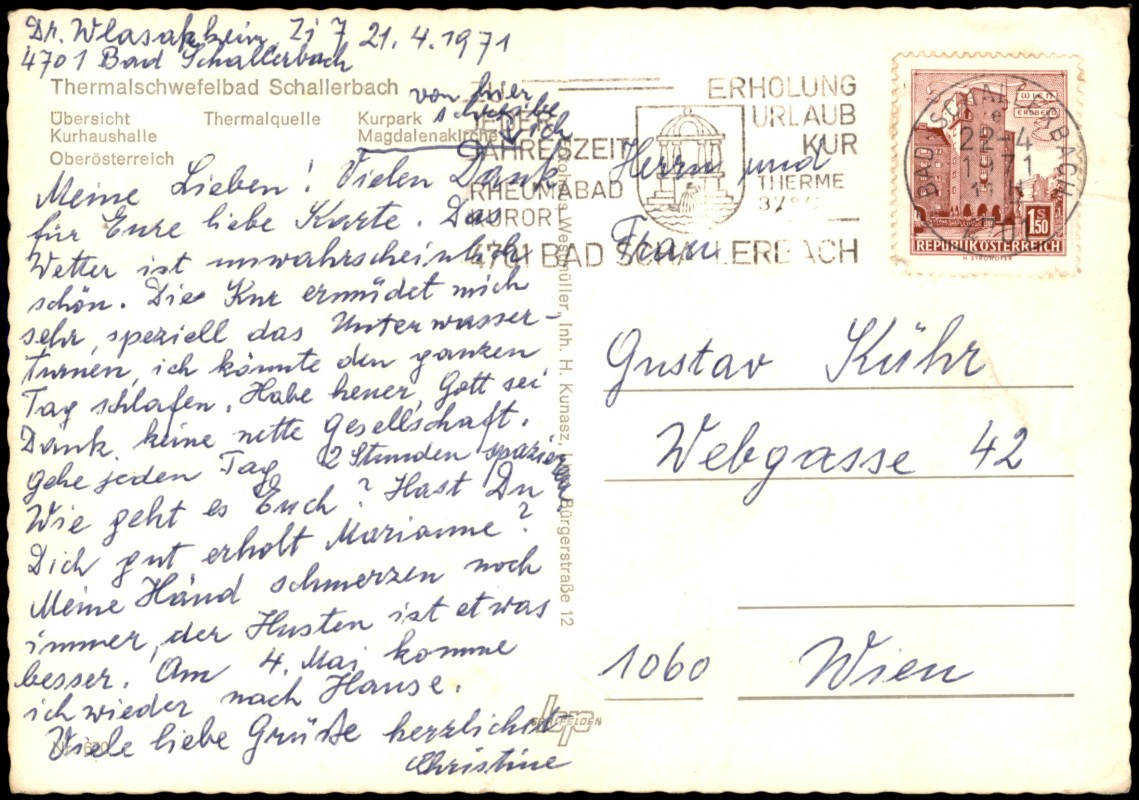 Dr. Wlasakheim Zi 7 21.4.1971
4701 Bad Schallerbach
Thermalschwefelbad Schallerbach
Übersicht Thermalquelle Kurpark
Kurhaushalle Magdalenakirche
Oberösterreich
von hier
schreibe
ich
Meine Lieben! Vielen Dank
für Eure liebe Karte. Das
Wetter ist unwahrscheinlich
schön. Die Kur ermüdet mich
sehr, speziell das Unterwasser-
turnen, ich könnte den ganzen
Tag schlafen. Habe heuer, Gott sei
Dank, keine nette Gesellschaft.
Gehe jeden Tag 2 Stunden spazieren
Wie geht es Euch? Hast Du
Dich gut erholt Marianne?
Meine Händ schmerzen noch
immer, der Husten ist etwas
besser. Am 4. Mai komme
ich wieder nach Hause.
Viele liebe Grüße herzlichst
Christine
Bürgerstraße 12
Inh. H. Kunasz,
ZU
JEDER
JAHRESZEIT
RHEUMABAD
KURORT
4701 BAD SCHALLERBACH
ERHOLUNG
URLAUB
KUR
THERME
BAD SCHALLERBACH
22-4
1971
WIEN
ERDBERG
S
1.50
REPUBLIK ÖSTERREICH
Herrn und
Frau
Gustav Kühr
Webgasse 42
1060 Wien